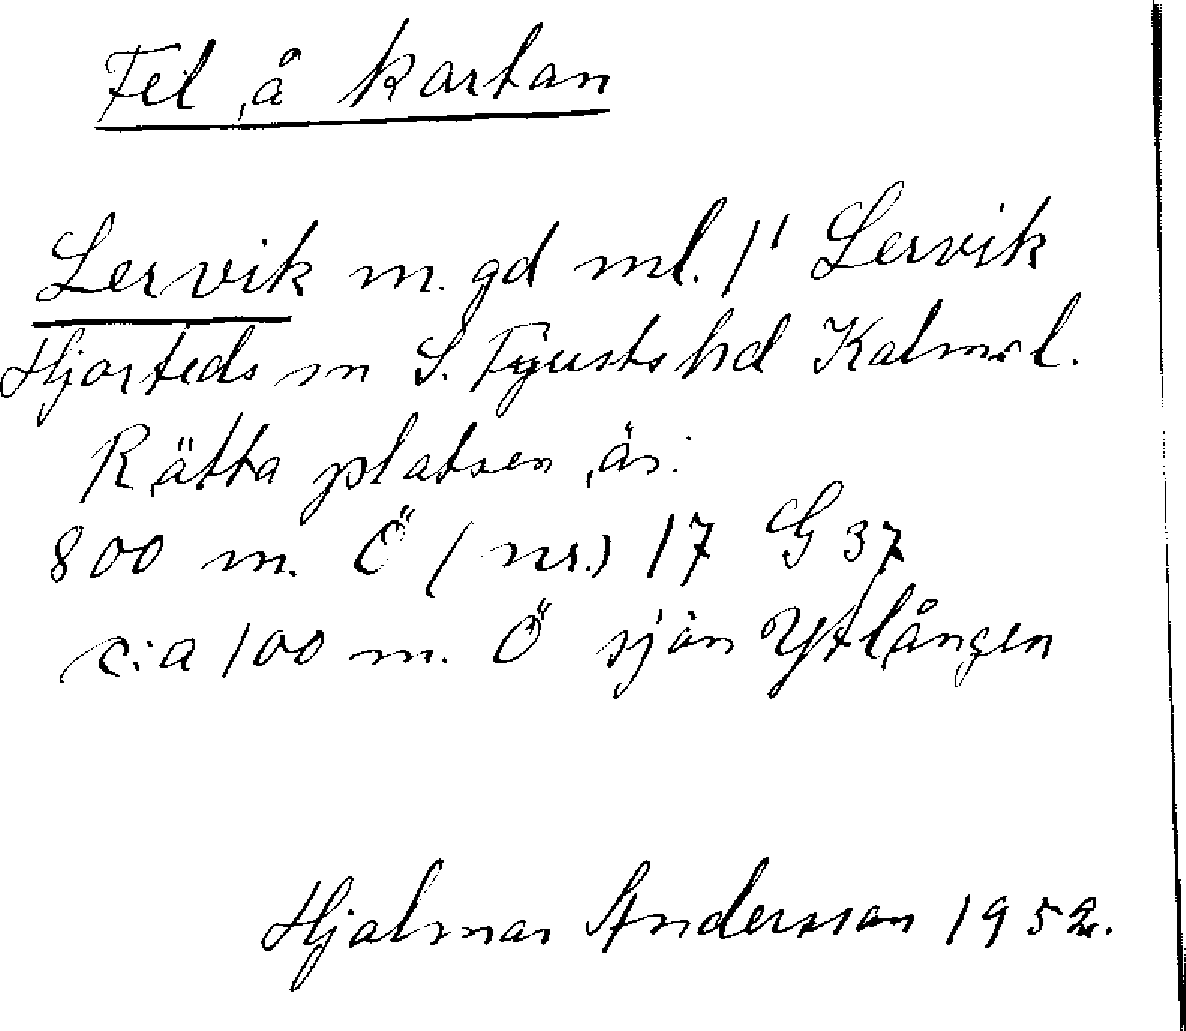 Fel å kartan
Lervik m. gd ml. 1' Lervik
Hjorteds sn S. Tjusts hd Kalm. l.
Rätta platsen är:
800 m. Ö (nr.) 17 G 37
c:a 100 m. Ö sjön Ytlången
Hjalmar Andersson 1952.